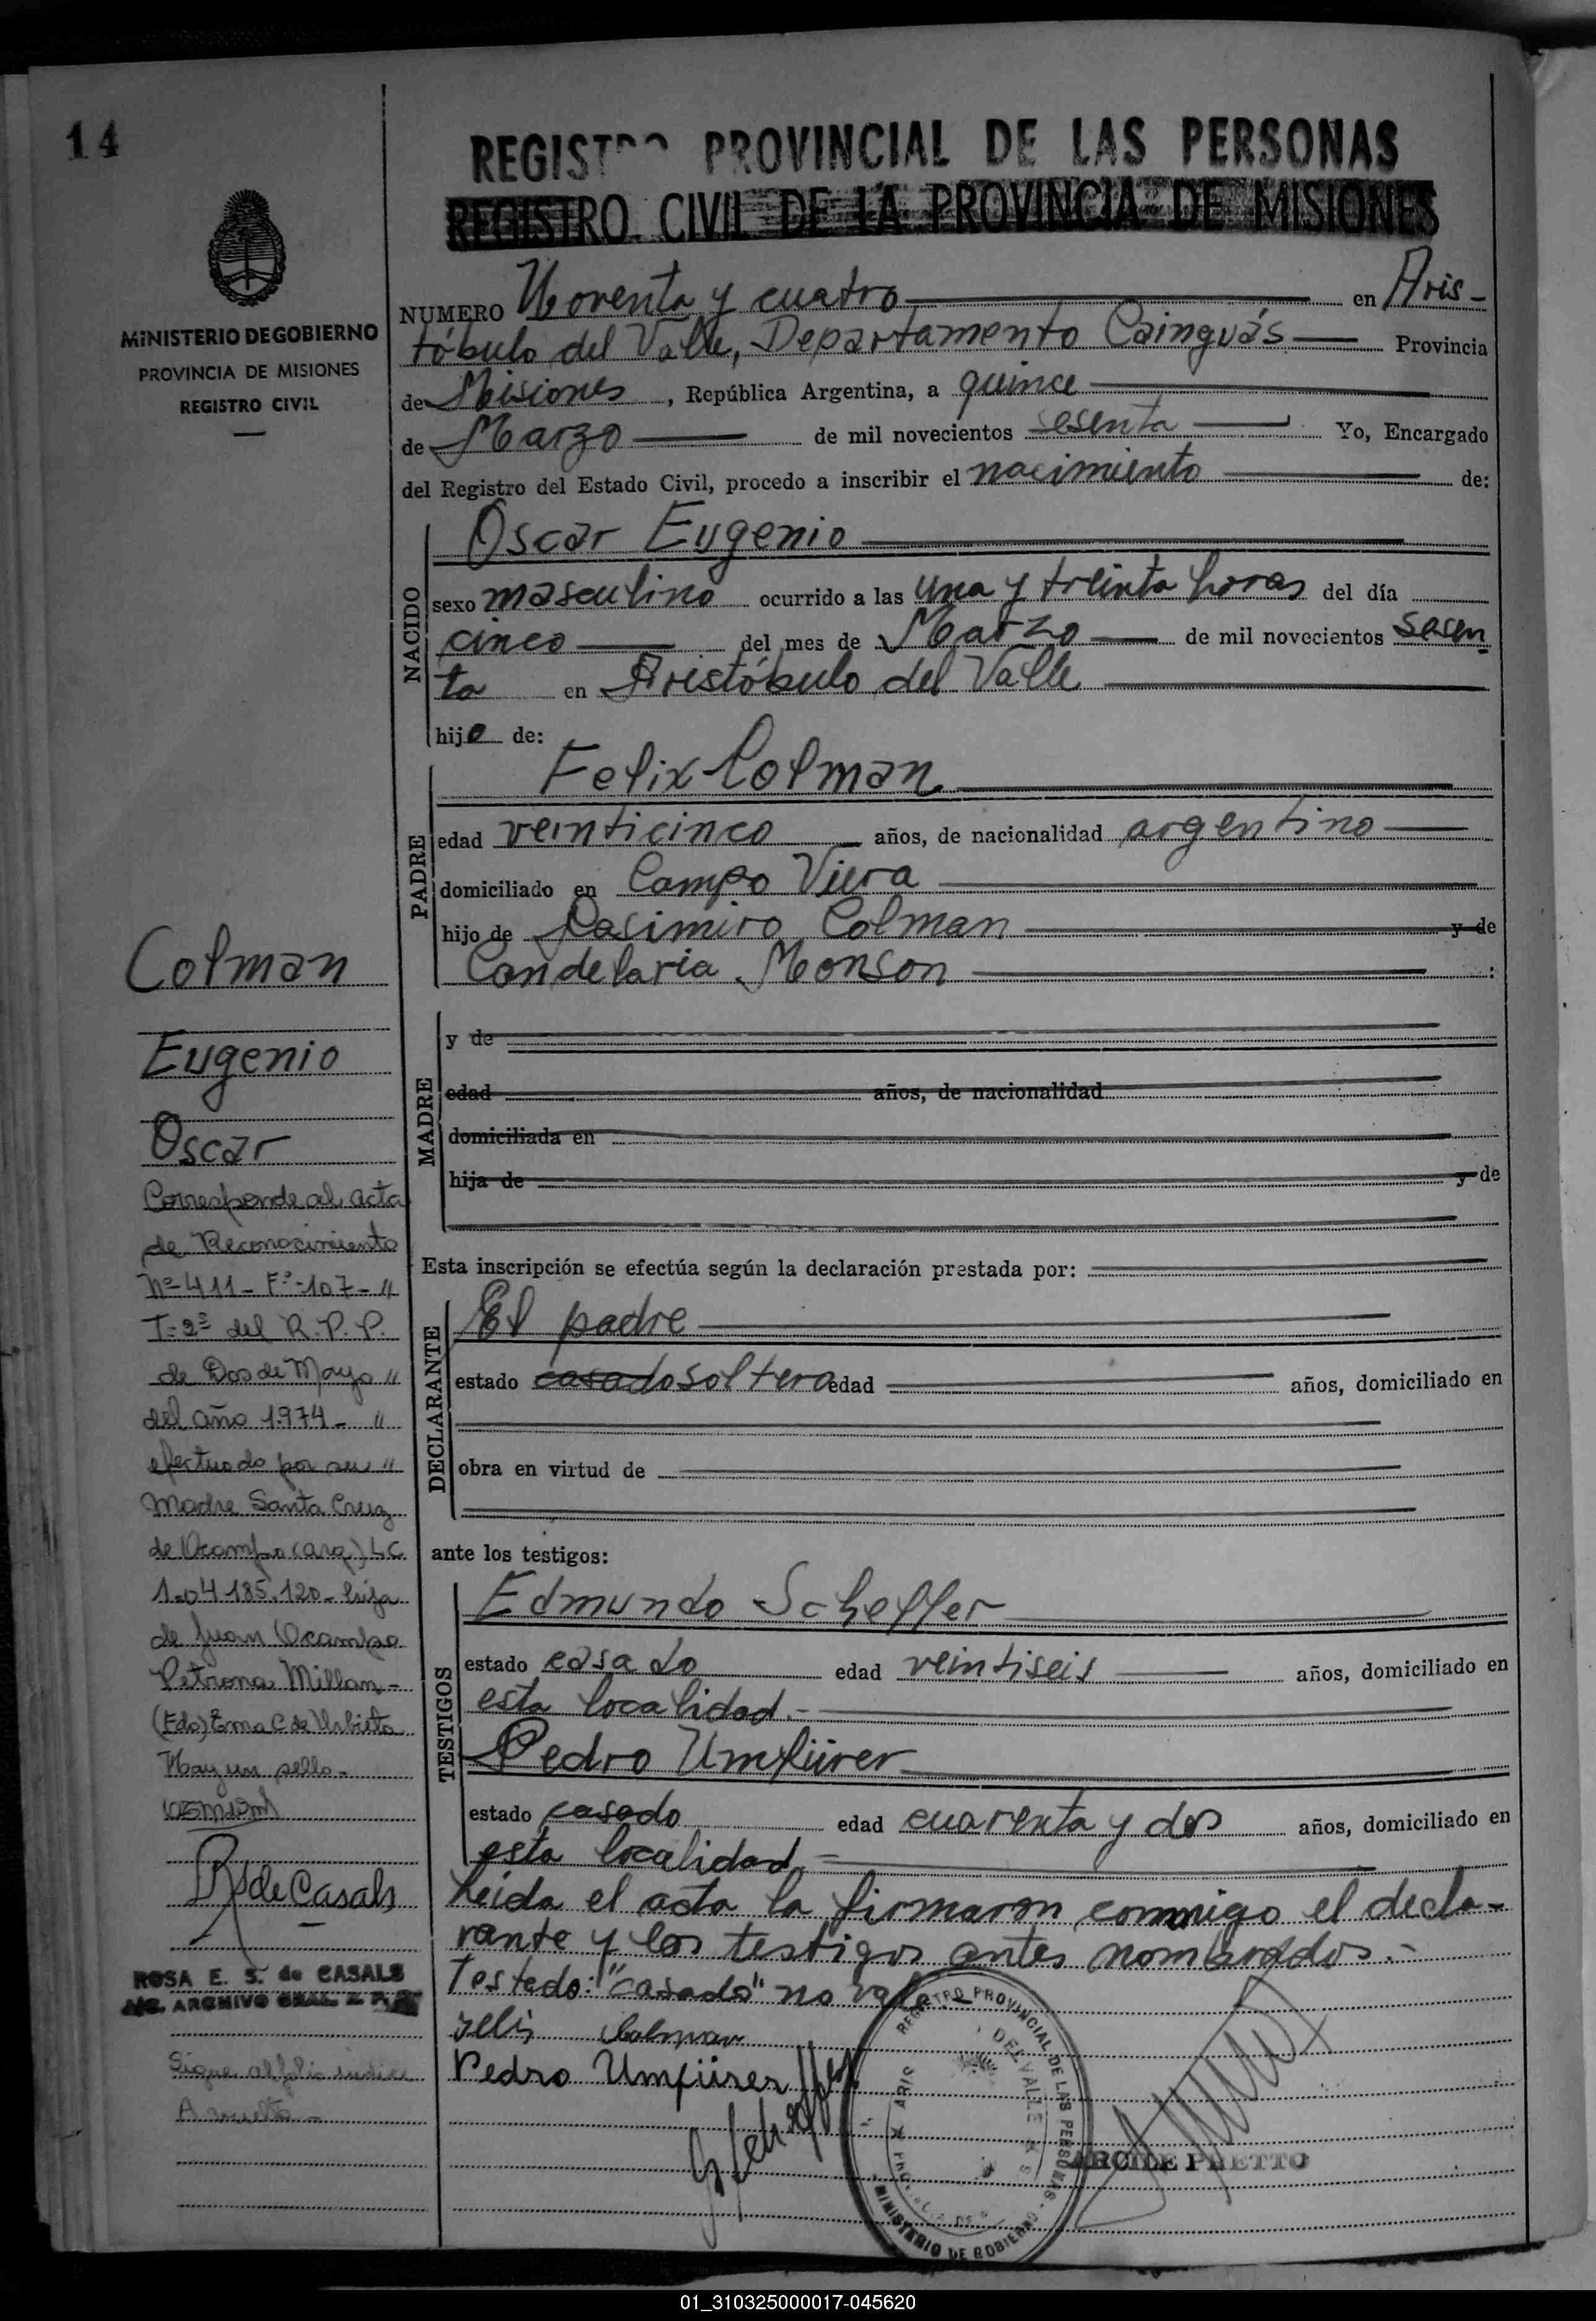 14
REGISTRO PROVINCIAL DE LAS PERSONAS
REGISTRO CIVIL DE LA PROVINCIA DE MISIONES
MINISTERIO DE GOBIERNO
PROVINCIA DE MISIONES
REGISTRO CIVIL
NUMERO Noventa y cuatro en Aris-
tóbulo del Valle, Departamento Cainguás Provincia
de Misiones, República Argentina, a quince
de Marzo de mil novecientos sesenta Yo, Encargado
del Registro del Estado Civil, procedo a inscribir el nacimiento de:
NACIDO
Oscar Eugenio
sexo masculino ocurrido a las una y treinta horas del día
cinco del mes de Marzo de mil novecientos sesen
ta en Aristóbulo del Valle
hijo de:
PADRE
Felix Colman
edad veinticinco años, de nacionalidad argentino
domiciliado en Campo Viera
hijo de Casimiro Colman y de
Candelaria Monson :
MADRE
y de
edad años, de nacionalidad
domiciliada en
hija de y de
Esta inscripción se efectúa según la declaración prestada por:
DECLARANTE
El padre
estado casado soltero edad años, domiciliado en
obra en virtud de
ante los testigos:
TESTIGOS
Edmundo Scheffer
estado casado edad veintiseis años, domiciliado en
esta localidad.-
Pedro Umfürer
estado casado edad cuarenta y dos años, domiciliado en
esta localidad.-
Leida el acta la firmaron conmigo el decla-
rante y los testigos antes nombrados.-
Testado: "casado" no vale
Felis Colman
Pedro Umfürer
REGISTRO PROVINCIAL DE LAS PERSONAS
DEL VALLE
MINISTERIO DE GOBIERNO
ARCILE PRETTO
Colman
Eugenio
Oscar
Corresponde al acta
de Reconocimiento
Nº 411- Fº-107- "
T-2º del R.P.P.
de Dos de Mayo "
del año 1.974- "
efectuado por su "
Madre Santa Cruz
de Ocampo (arg) L.C
1-04.185.120- hija
de Juan Ocampo
Petrona Millan-
(Fdo) Ema C de Urbieta
Hay un sello-
R S de Casals
ROSA E. S. de CASALS
Sigue al folio indice
A vuelta -
01_310325000017-045620